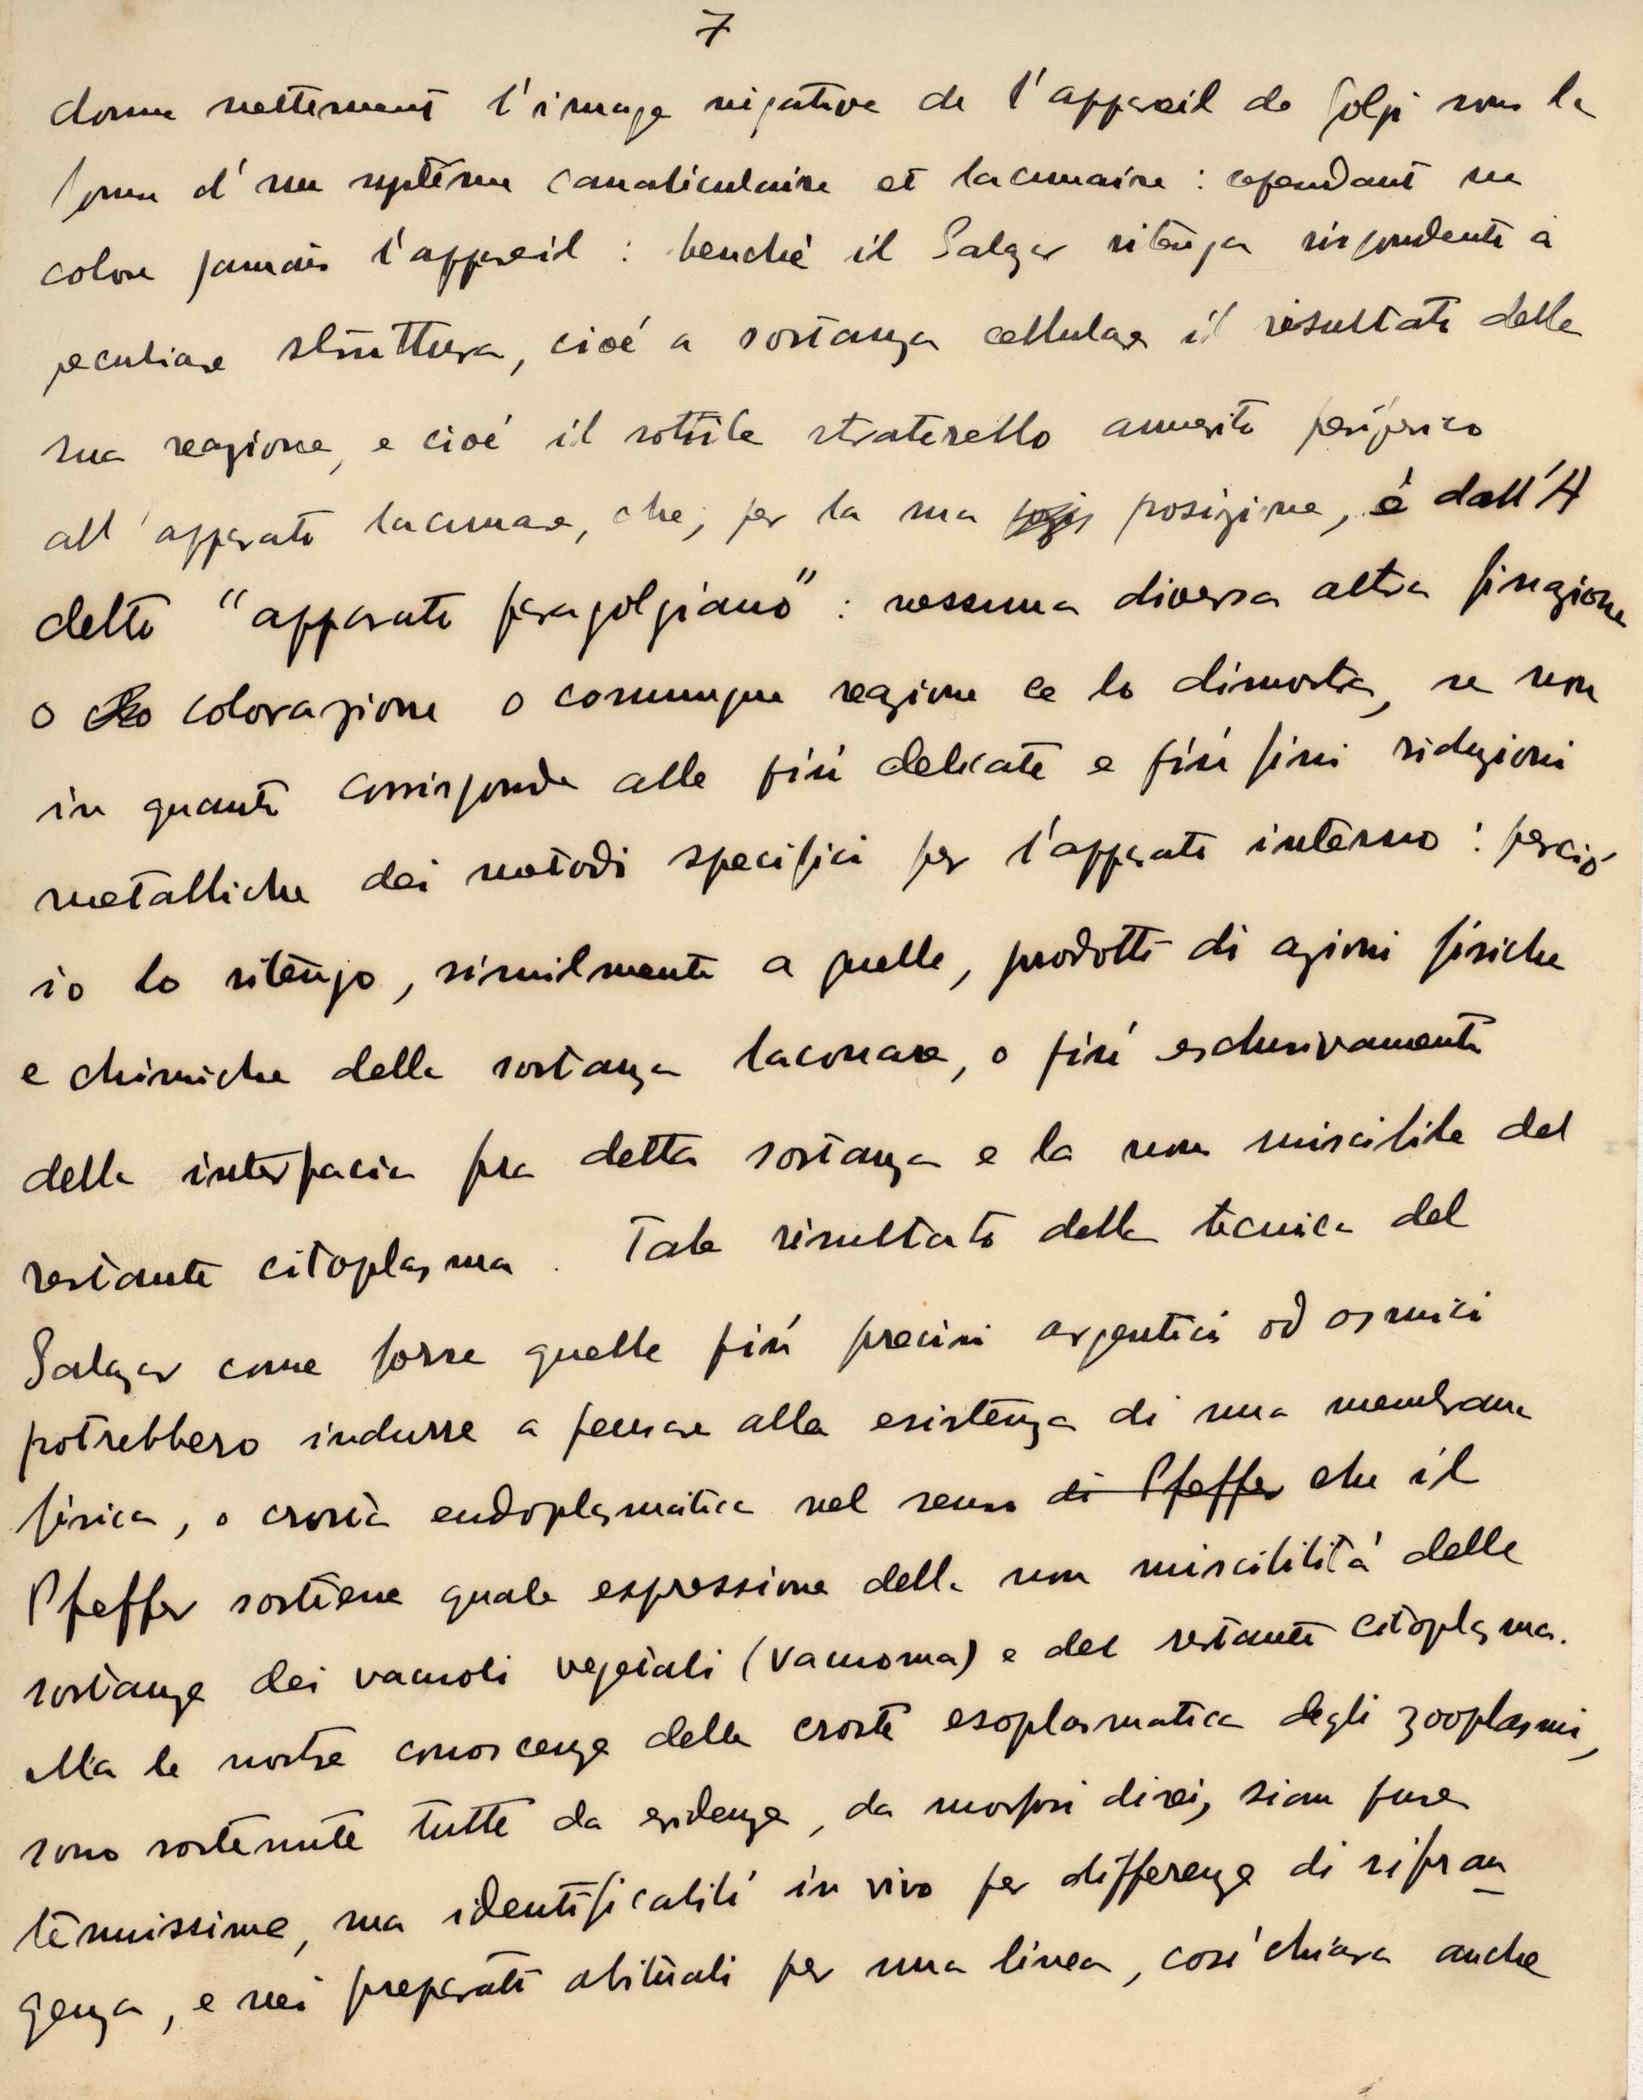 7
donne nettement l'image négative de l'appareil de Golgi sous la
forme d'un système canaliculaire et lacunaire : cependant ne
colore jamais l'appareil : benché il Salazar ritenga rispondente a
peculiare struttura, cioé a sostanza cellulare il risultato della
sua reazione, e cioé il sottile straterello annerito periferico
all'apparato lacunare, che, per la sua posizione, é dall'A
detto "apparato paragolgiano" : nessuna diversa altra fissazione
o colorazione o comunque reazione ce lo dimostra, se non
in quanto corrisponde alle piú delicate e piú fini riduzioni
metalliche dei metodi specifici per l'apparato interno : perció
io lo ritengo, similmente a quelle, prodotto di azioni fisiche
e chimiche della sostanza lacunare, o piú esclusivamente
della interfacia fra detta sostanza e la non miscibile del
restante citoplasma. Tale risultato della tecnica del
Salazar come forse quelle piú precisi argentici od osmici
potrebbero indurre a pensare alla esistenza di una membrana
fisica, o crosta endoplasmatica nel senso di Pfeffer che il
Pfeffer sostiene quale espressione della non miscibilitá delle
sostanze dei vacuoli vegetali (vacuoma) e del restante citoplasma.
Ma le nostre conoscenze della crosta esoplasmatica degli zooplasmi,
sono sostenute tutte da evidenze, da morfosi direi, siano pure
tenuissime, ma identificabili in vivo per differenze di rifran
genza, e nei preparati abituali per una linea, cosí chiara anche